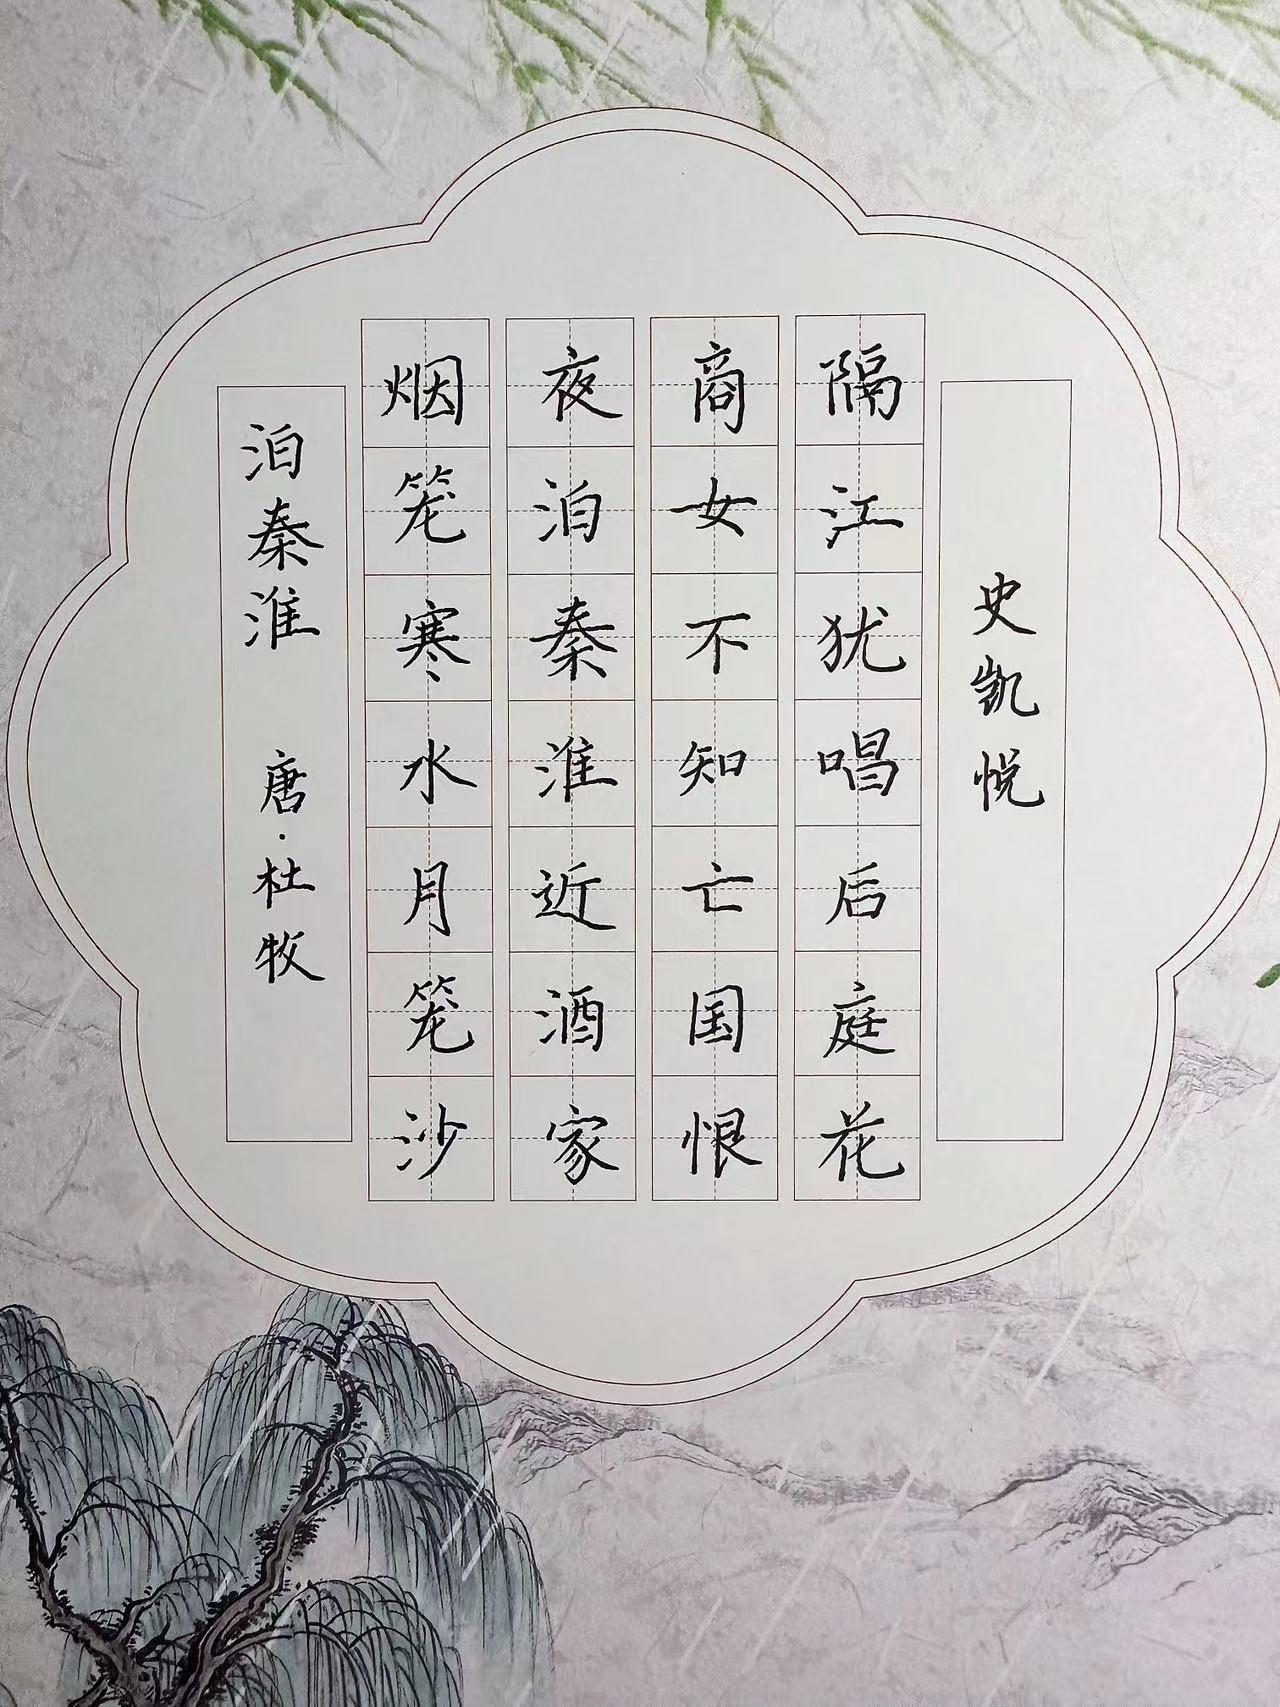 泊秦淮 唐·杜牧
烟笼寒水月笼沙
夜泊秦淮近酒家
商女不知亡国恨
隔江犹唱后庭花
史凯悦